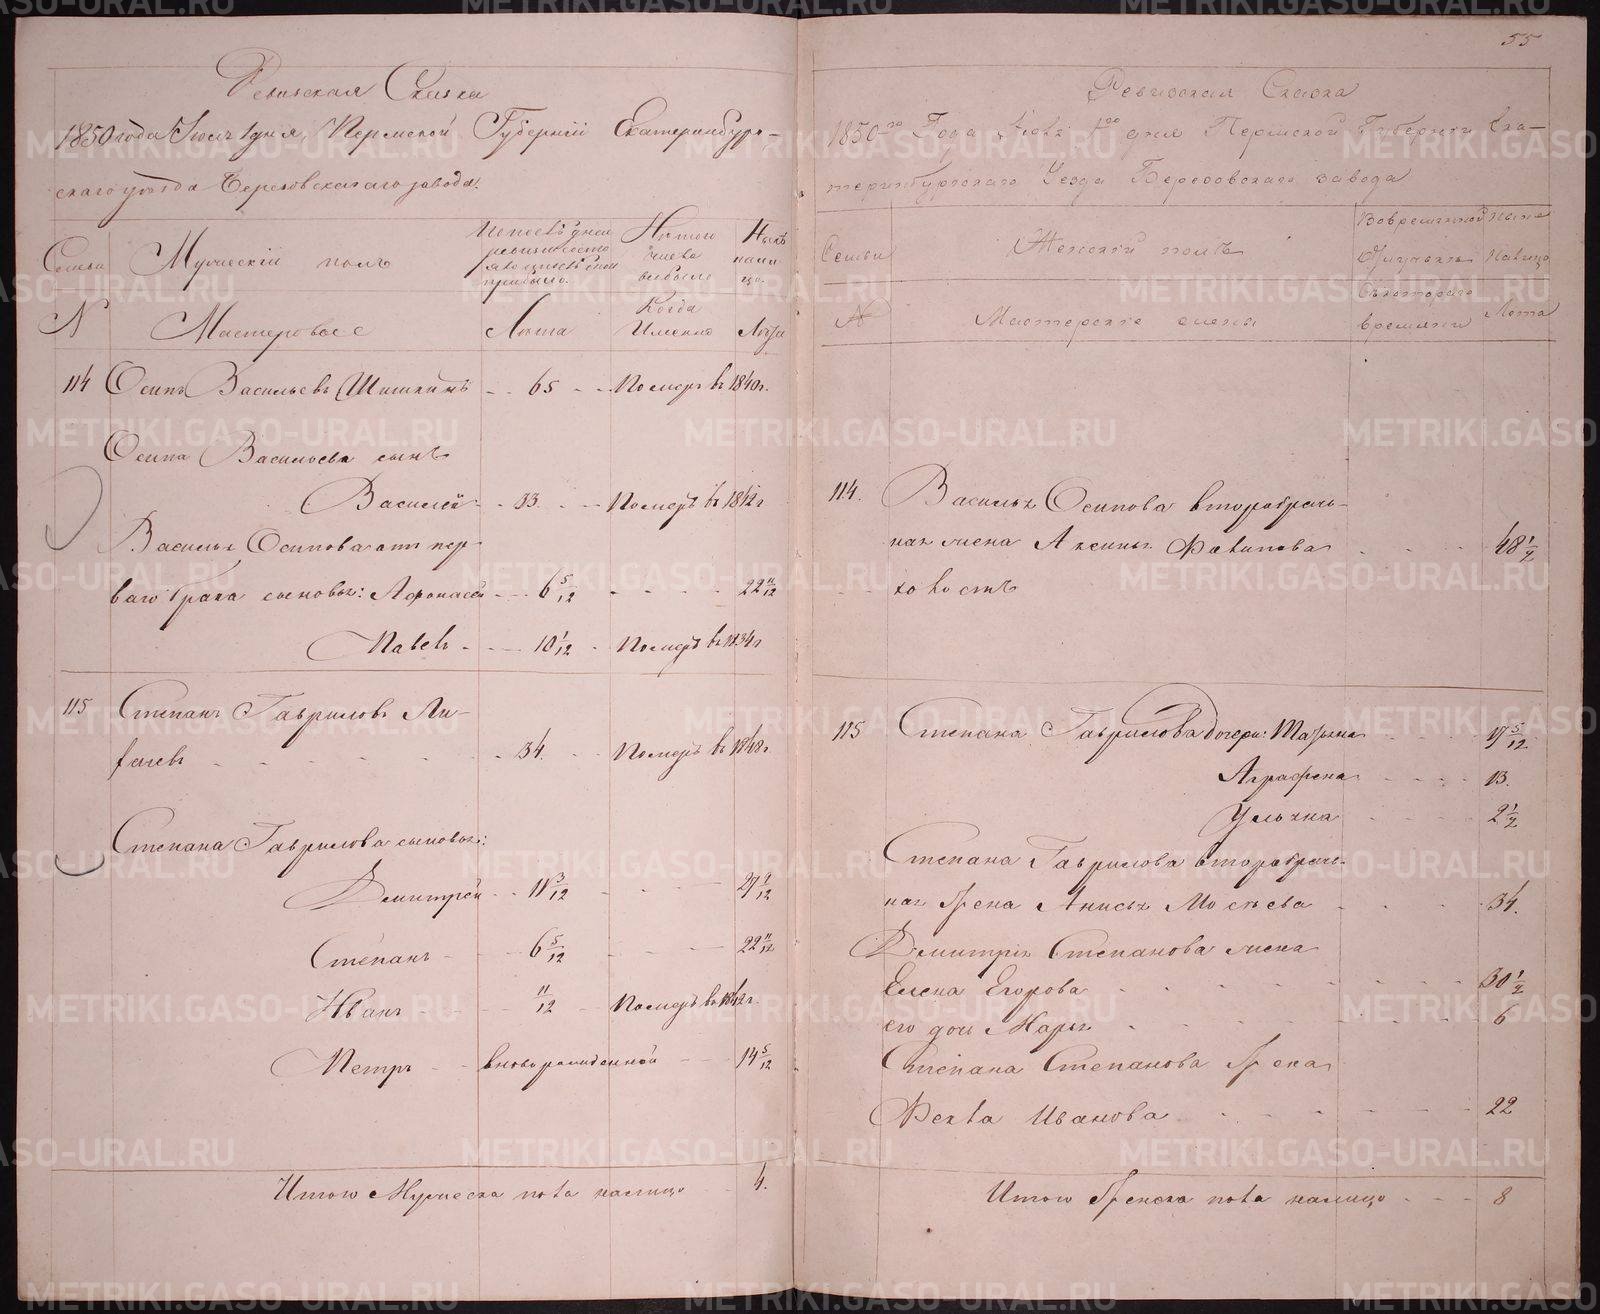 Ревизская Сказка
1850 года Июля 1 дня Пермской Губернии Екатеринбург-
скаго уезда Березовскаго завода.
Семьи
Мужеский полъ
По последней
ревизии состо
яло и после оной
прибыло.
Изъ того
числа
выбыло
Ныне
нали
цо.
N
Мастеровые
Лета
Когда
Именно
Лета
114 Осипъ Васильевъ Шишкинъ - - 65 - - Померъ въ 1840 г.
Осипа Васильева сынъ
Василей - - 33. - - Померъ въ 1842 г
Василья Осипова отъ пер
ваго брака сыновья: Афонасей - - - 6 5/12 - - - - 22 11/12
Павелъ - - - 10 1/12 - Померъ въ 1834 г
115 Степанъ Гавриловъ
34. - - Померъ въ 1848 г
Степана Гаврилова сыновья:
Дмитрей - - 11 3/12 - - - 27 9/12
Степанъ - - - 6 5/12 - - - 22 11/12
Иванъ - - - 11/12 - Померъ въ 1842 г.
Петръ - - вновь рожденной - - 14 5/12
Итого Мужеска пола налицо - - 4.
55
Ревизская Сказка
1850-го Года Июля 1-го дня Пермской Губернии Ека-
теринбургскаго Уезда Березовскаго завода
Семьи
Женский полъ
Во временной
отлучке
Ныне
Налицо
N
Мастерские жены
Съ котораго
времяни
Лета
114. Василья Осипова второбрач-
ная жена Аксинья Филипова - - - 48 1/2
холостъ
115 Степана Гаврилова дочери: Татьяна - - - 17 5/12
Аграфена - - - - 13.
Ульяна - - - - 2 1/2
Степана Гаврилова второбрач-
ная жена Анисья Мосеева - - - 34.
Дмитрия Степанова жена
Елена Егорова - - - - - 30 1/2
его дочь Марья - - - - - 6
Степана Степанова жена
Фекла Иванова - - - - - 22
Итого Женска пола налицо - - - 8
METRIKI.GASO-URAL.RU